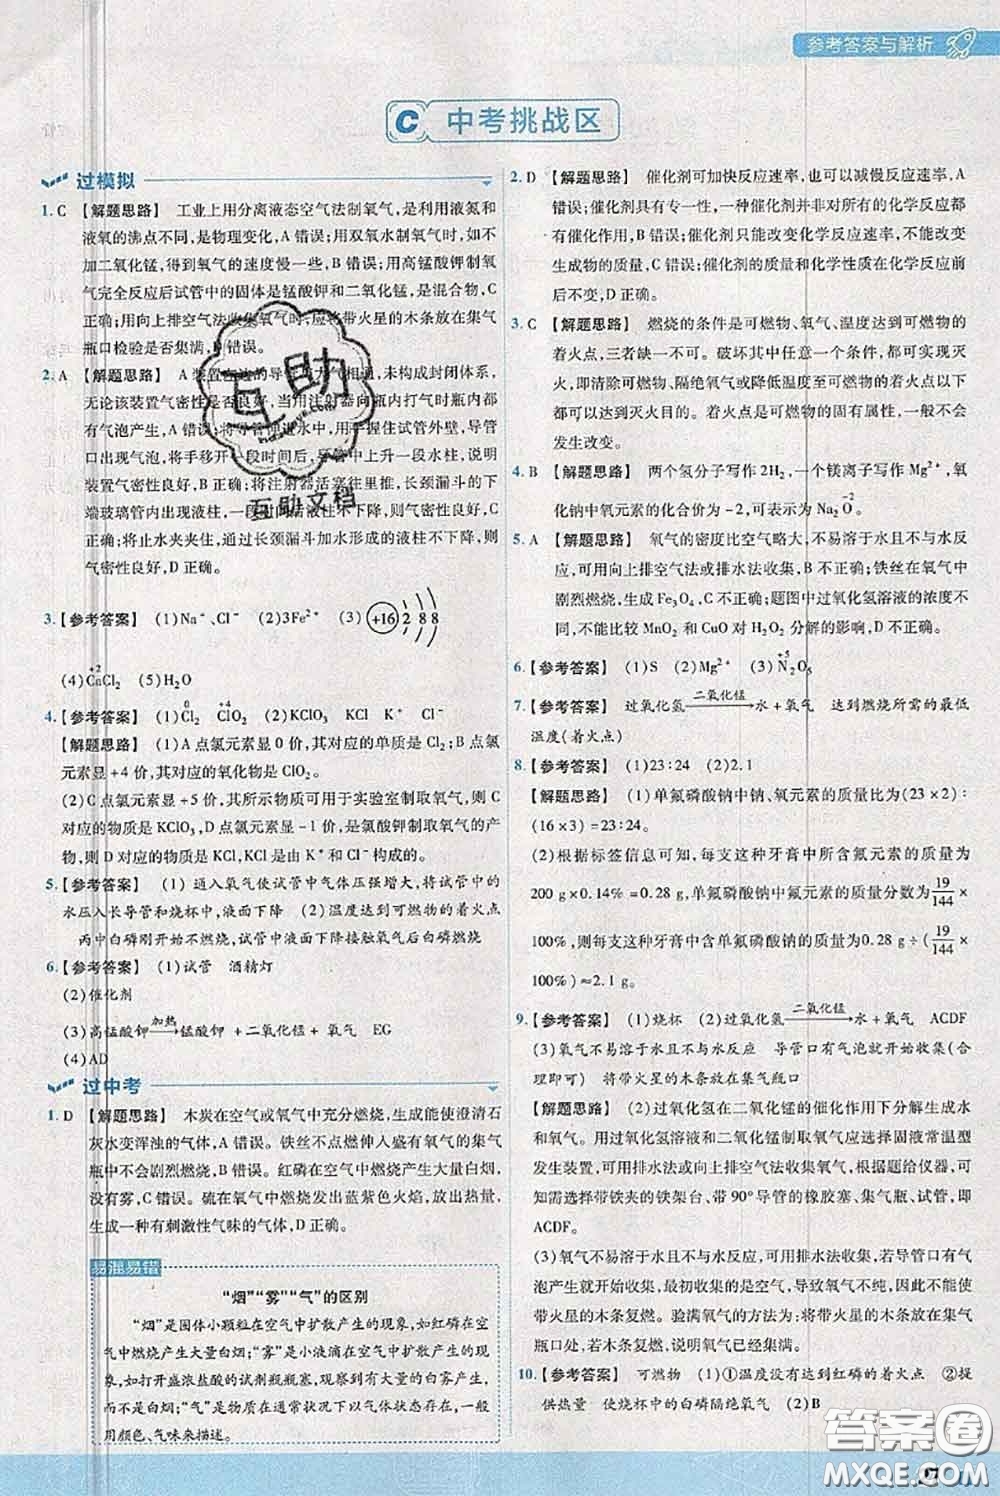 参考答案与解析
C 中考挑战区
过模拟
1. C 【解题思路】 工业上用分离液态空气法制氧气,是利用液氮和
液氧的沸点不同,是物理变化,A错误;用双氧水制氧气时,如不
加二氧化锰,得到氧气的速度慢一些,B错误;用高锰酸钾制氧
气完全反应后试管中的固体是锰酸钾和二氧化锰,是混合物,C
正确;用向上排空气法收集氧气时,应将带火星的木条放在集气
瓶口检验是否集满,D错误。
2. A 【解题思路】 A装置右边的导管与大气相通,未构成封闭体系,
无论该装置气密性是否良好,当用注射器向瓶内打气时瓶内都
有气泡产生,A错误;将导管伸进水中,用手握住试管外壁,导管
口出现气泡,将手移开一段时间后,导管中上升一段水柱,说明
装置气密性良好,B正确;将注射器活塞往里推,长颈漏斗的下
端玻璃管内出现液柱,则气密性良好,C
正确;将止水夹夹住,通过长颈漏斗加水形成的液柱不下降,则
气密性良好,D正确。
3. 【参考答案】 (1)Na⁺、Cl⁻ (2)3Fe²⁺ (3) +16 2 8 8
(4)CaCl₂ +2 (5)H₂O
4. 【参考答案】 (1)Cl₂ 0 ClO₂ +4 (2)KClO₃ KCl K⁺ Cl⁻
【解题思路】 (1)A点氯元素显0价,其对应的单质是Cl₂;B点氯
元素显+4价,其对应的氧化物是ClO₂。
(2)C点氯元素显+5价,其对应的物质可用于实验室制取氧气,则C
对应的物质是KClO₃,D点氯元素显-1价,是氯酸钾制取氧气的产
物,则D对应的物质是KCl,KCl是由K⁺和Cl⁻构成的。
5. 【参考答案】 (1)通入氧气使试管中气体压强增大,将试管中的
水压入长导管和烧杯中,液面下降 (2)温度达到可燃物的着火点
丙中白磷刚开始不燃烧,试管中液面下降接触氧气后白磷燃烧
6. 【参考答案】 (1)试管 酒精灯
(2)催化剂
(3)高锰酸钾 加热→ 锰酸钾+二氧化锰+氧气 EG
(4)AD
过中考
1. D 【解题思路】 木炭在空气或氧气中充分燃烧,生成能使澄清石
灰水变浑浊的气体,A错误。铁丝不点燃伸入盛有氧气的集气
瓶中不会剧烈燃烧,B错误。红磷在空气中燃烧产生大量白烟,
没有雾,C错误。硫在氧气中燃烧发出蓝紫色火焰,放出热量,
生成一种有刺激性气味的气体,D正确。
易混易错
“烟”“雾”“气”的区别
“烟”是固体小颗粒在空气中扩散产生的现象,如红磷在空
气中燃烧产生大量白烟;“雾”是小液滴在空气中扩散产生的现
象,如打开盛浓盐酸的试剂瓶瓶塞,观察到有大量的白雾产生,
而不是白烟;“气”是物质在通常状况下以气态的形式存在,一般
用颜色、气味来描述。
2. D 【解题思路】 催化剂可加快反应速率,也可以减慢反应速率,A
错误;催化剂具有专一性,一种催化剂并非对所有的化学反应都
有催化作用,B错误;催化剂只能改变化学反应速率,不能改变
生成物的质量,C错误;催化剂的质量和化学性质在化学反应前
后不变,D正确。
3. C 【解题思路】 燃烧的条件是可燃物、氧气、温度达到可燃物的
着火点,三者缺一不可。破坏其中任意一个条件,都可实现灭
火,即清除可燃物、隔绝氧气或降低温度至可燃物的着火点以下
都可以达到灭火目的。着火点是可燃物的固有属性,一般不会
发生改变。
4. B 【解题思路】 两个氢分子写作2H₂,一个镁离子写作Mg²⁺,氧
化钠中氧元素的化合价为-2,可表示为Na₂O -2。
5. A 【解题思路】 氧气的密度比空气略大,不易溶于水且不与水反
应,可用向上排空气法或排水法收集,B不正确;铁丝在氧气中
剧烈燃烧,生成Fe₃O₄,C不正确;题图中过氧化氢溶液的浓度不
同,不能比较MnO₂和CuO对H₂O₂分解的影响,D不正确。
6. 【参考答案】 (1)S (2)Mg²⁺ (3)N₂O₅ +5
7. 【参考答案】 过氧化氢 二氧化锰→ 水+氧气 达到燃烧所需的最低
温度(着火点)
8. 【参考答案】 (1)23:24 (2)2.1
【解题思路】 (1)单氟磷酸钠中钠、氧元素的质量比为(23×2):
(16×3)=23:24。
(2)根据标签信息可知,每支这种牙膏中所含氟元素的质量为
200 g×0.14%=0.28 g,单氟磷酸钠中氟元素的质量分数为19/144×
100%,则每支这种牙膏中含单氟磷酸钠的质量为0.28 g÷(19/144×
100%)≈2.1 g。
9. 【参考答案】 (1)烧杯 (2)过氧化氢 二氧化锰→ 水+氧气 ACDF
(3)氧气不易溶于水且不与水反应 导管口有气泡就开始收集(合
理即可) 将带火星的木条放在集气瓶口
【解题思路】 (2)过氧化氢在二氧化锰的催化作用下分解生成水
和氧气。用过氧化氢溶液和二氧化锰制取氧气应选择固液常温型
发生装置,可用排水法和向上排空气法收集氧气,根据题给仪器,可
知应选择带铁夹的铁架台、带90°导管的橡胶塞、集气瓶、试管,即
ACDF。
(3)氧气不易溶于水且不与水反应,可用排水法收集,若导管口有气
泡产生就开始收集,最初收集的是空气,导致氧气不纯,因此不能使
带火星的木条复燃。验满氧气的方法为:将带火星的木条放在集气
瓶口处,若木条复燃,说明氧气已经集满。
10. 【参考答案】 可燃物 (1)①温度没有达到红磷的着火点 ②提
供热量 使烧杯中的白磷隔绝氧气 (2)B
互助
互助文档
答案圈
MXQE.COM